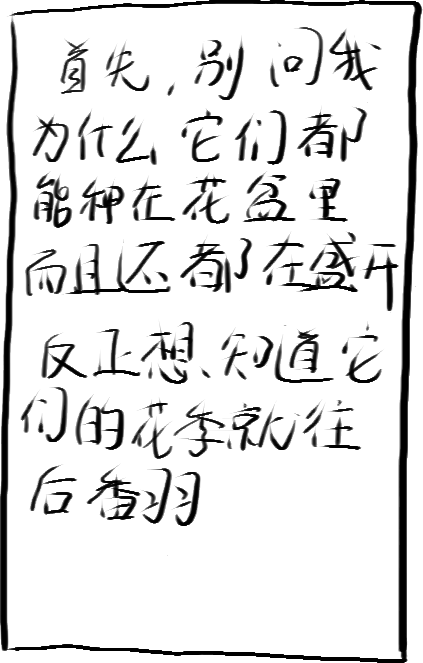 首先,别问我
为什么它们都
能种在花盆里
而且还都在盛开
反正想知道它
们的花季就往
后翻